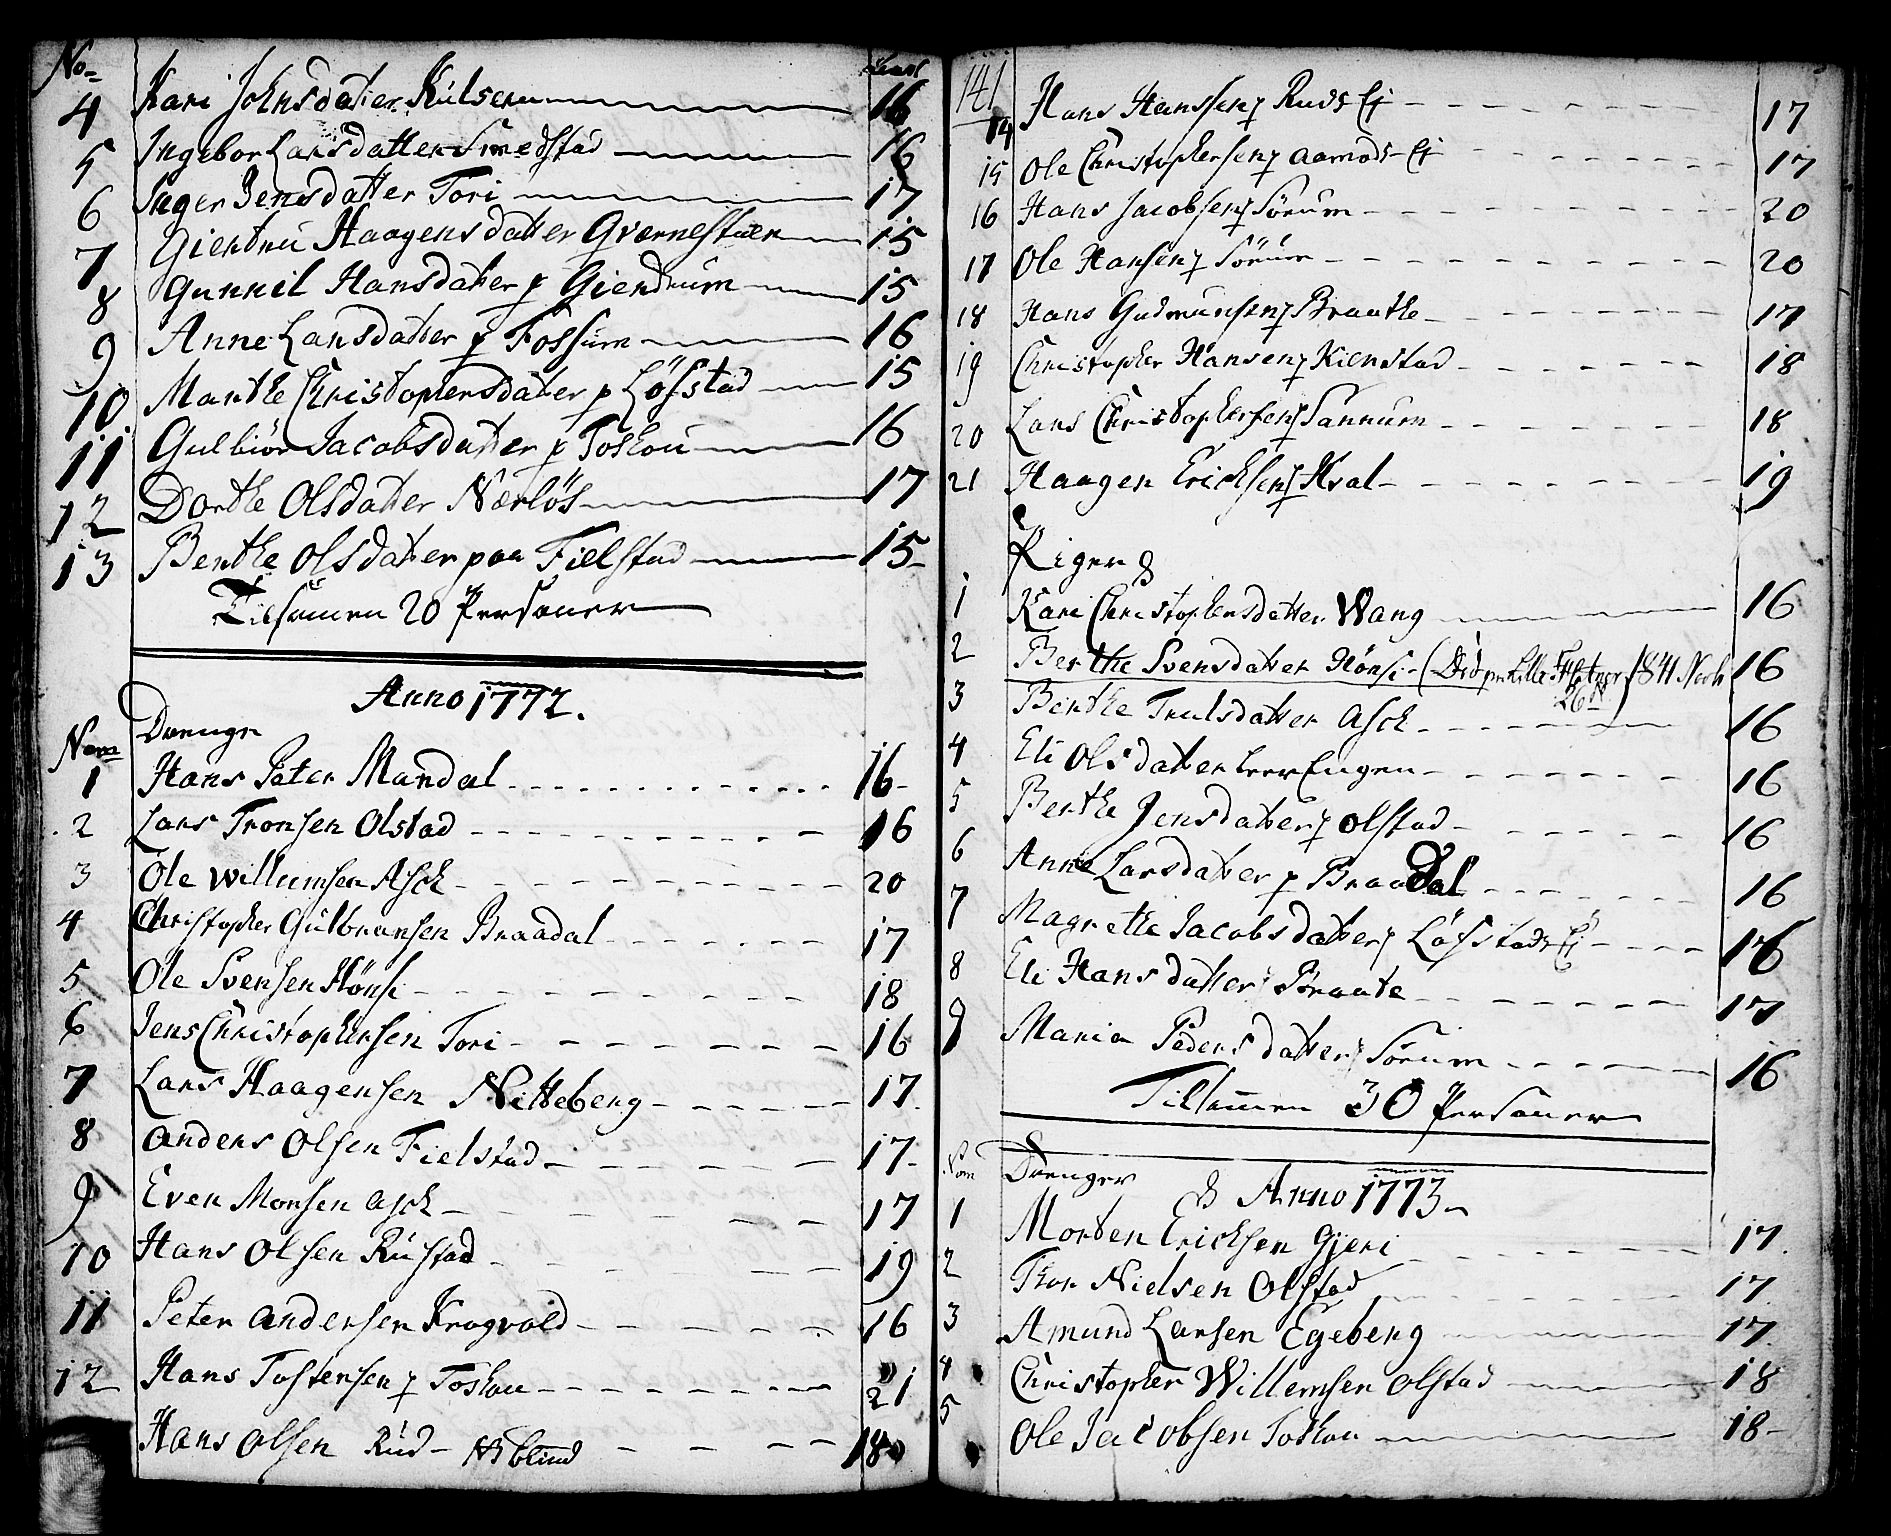 No
4 Kari Johnsdatter Kulseru 16
5 Ingebor Larsdatter Smedstad 16
6 Inger Jensdatter Tori 17
7 Giertru Haagensdatter Qvernestuen 15
8 Gunnil Hansdatter p Giendrum 15
9 Anne Larsdatter p Fossum 16
10 Marthe Christophersdatter p Löfstad 15
11 Gulbiör Jacobsdatter p Toskou 16
12 Dorthe Olsdatter Nærlös 17
13 Berthe Olsdatter paa Fielstad 15
Tilsamen 20 Personer
Anno 1772.
Drenge
Nom
1 Hans Peter Mandal 16
2 Lars Tronsen Olstad 16
3 Ole Willumsen Asck 20
4 Christopher Gulbransen Braadal 17
5 Ole Svensen Hönsi 18
6 Jens Christophersen Tori 16
7 Lars Haagensen Nitteberg 17
8 Anders Olsen Fielstad 17
9 Even Monsen Asck 17
10 Hans Olsen Rustad 19
11 Peter Andersen Krogvold 16
12 Hans Tostensen p Toskou 21
Hans Olsen Rud NB blind 18
141
14 Hans Hanssen p Ruds Ej 17
15 Ole Christophersen p Aamods Ej 17
16 Hans Jacobsen p Sörum 20
17 Ole Hansen p Sörum 20
18 Hans Gudmunsen p Braathe 17
19 Christopher Hansen p Kienstad 18
20 Lars Christophersen p Sannum 18
21 Haagen Ericksen p Hval 19
Piger
1 Kari Christophersdatter Wang 16
2 Berthe Svensdatter Hönsi (Död pr Lille 1841 16
3 Berthe Trulsdatter Asck 16
4 Eli Olsdatter leerEngen 16
5 Berthe Jensdatter p Olstad 16
6 Anne Larsdatter p Braadal 16
7 Magrethe Jacobsdatter p Löfstads Ej 16
8 Eli Hansdatter p Braate 17
9 Maria Pedersdatter p Sörum 16
Tilsamen 30 Personer
Nom Drenger Anno 1773
1 Morten Ericksen Gjeri 17.
2 Thor Nielsen Olstad 17
3 Amund Larsen Egeberg 17
4 Christopher Willemsen Olstad 18
5 Ole Jacobsen Toskou 18